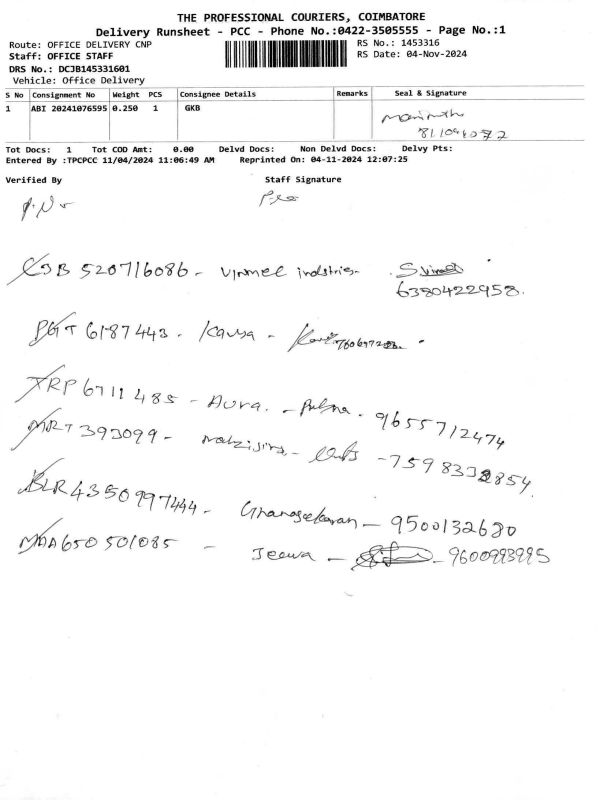 THE PROFESSIONAL COURIERS, COIMBATORE
Delivery Runsheet - PCC - Phone No.:0422-3505555 - Page No.:1
Route: OFFICE DELIVERY CNP
RS No.: 1453316
Staff: OFFICE STAFF
RS Date: 04-Nov-2024
DRS No.: DCJB145331601
Vehicle: Office Delivery
S No Consignment No Weight PCS Consignee Details Remarks Seal & Signature
1 ABI 20241076595 0.250 1 GKB
Tot Docs: 1 Tot COD Amt: 0.00 Delvd Docs: Non Delvd Docs: Delvy Pts:
Entered By :TPCPCC 11/04/2024 11:06:49 AM Reprinted On: 04-11-2024 12:07:25
Verified By Staff Signature
520716086 - Vinmel indstries -
6380422958.
PGT 6187443 -
TRP 6711485 - Aura. - 9655712474
MRT 393099 - - 7598332854
BLR 4350997444 - Gnanasekaran - 9500132680
MAA 650501085 - Jeeva - 9600993995